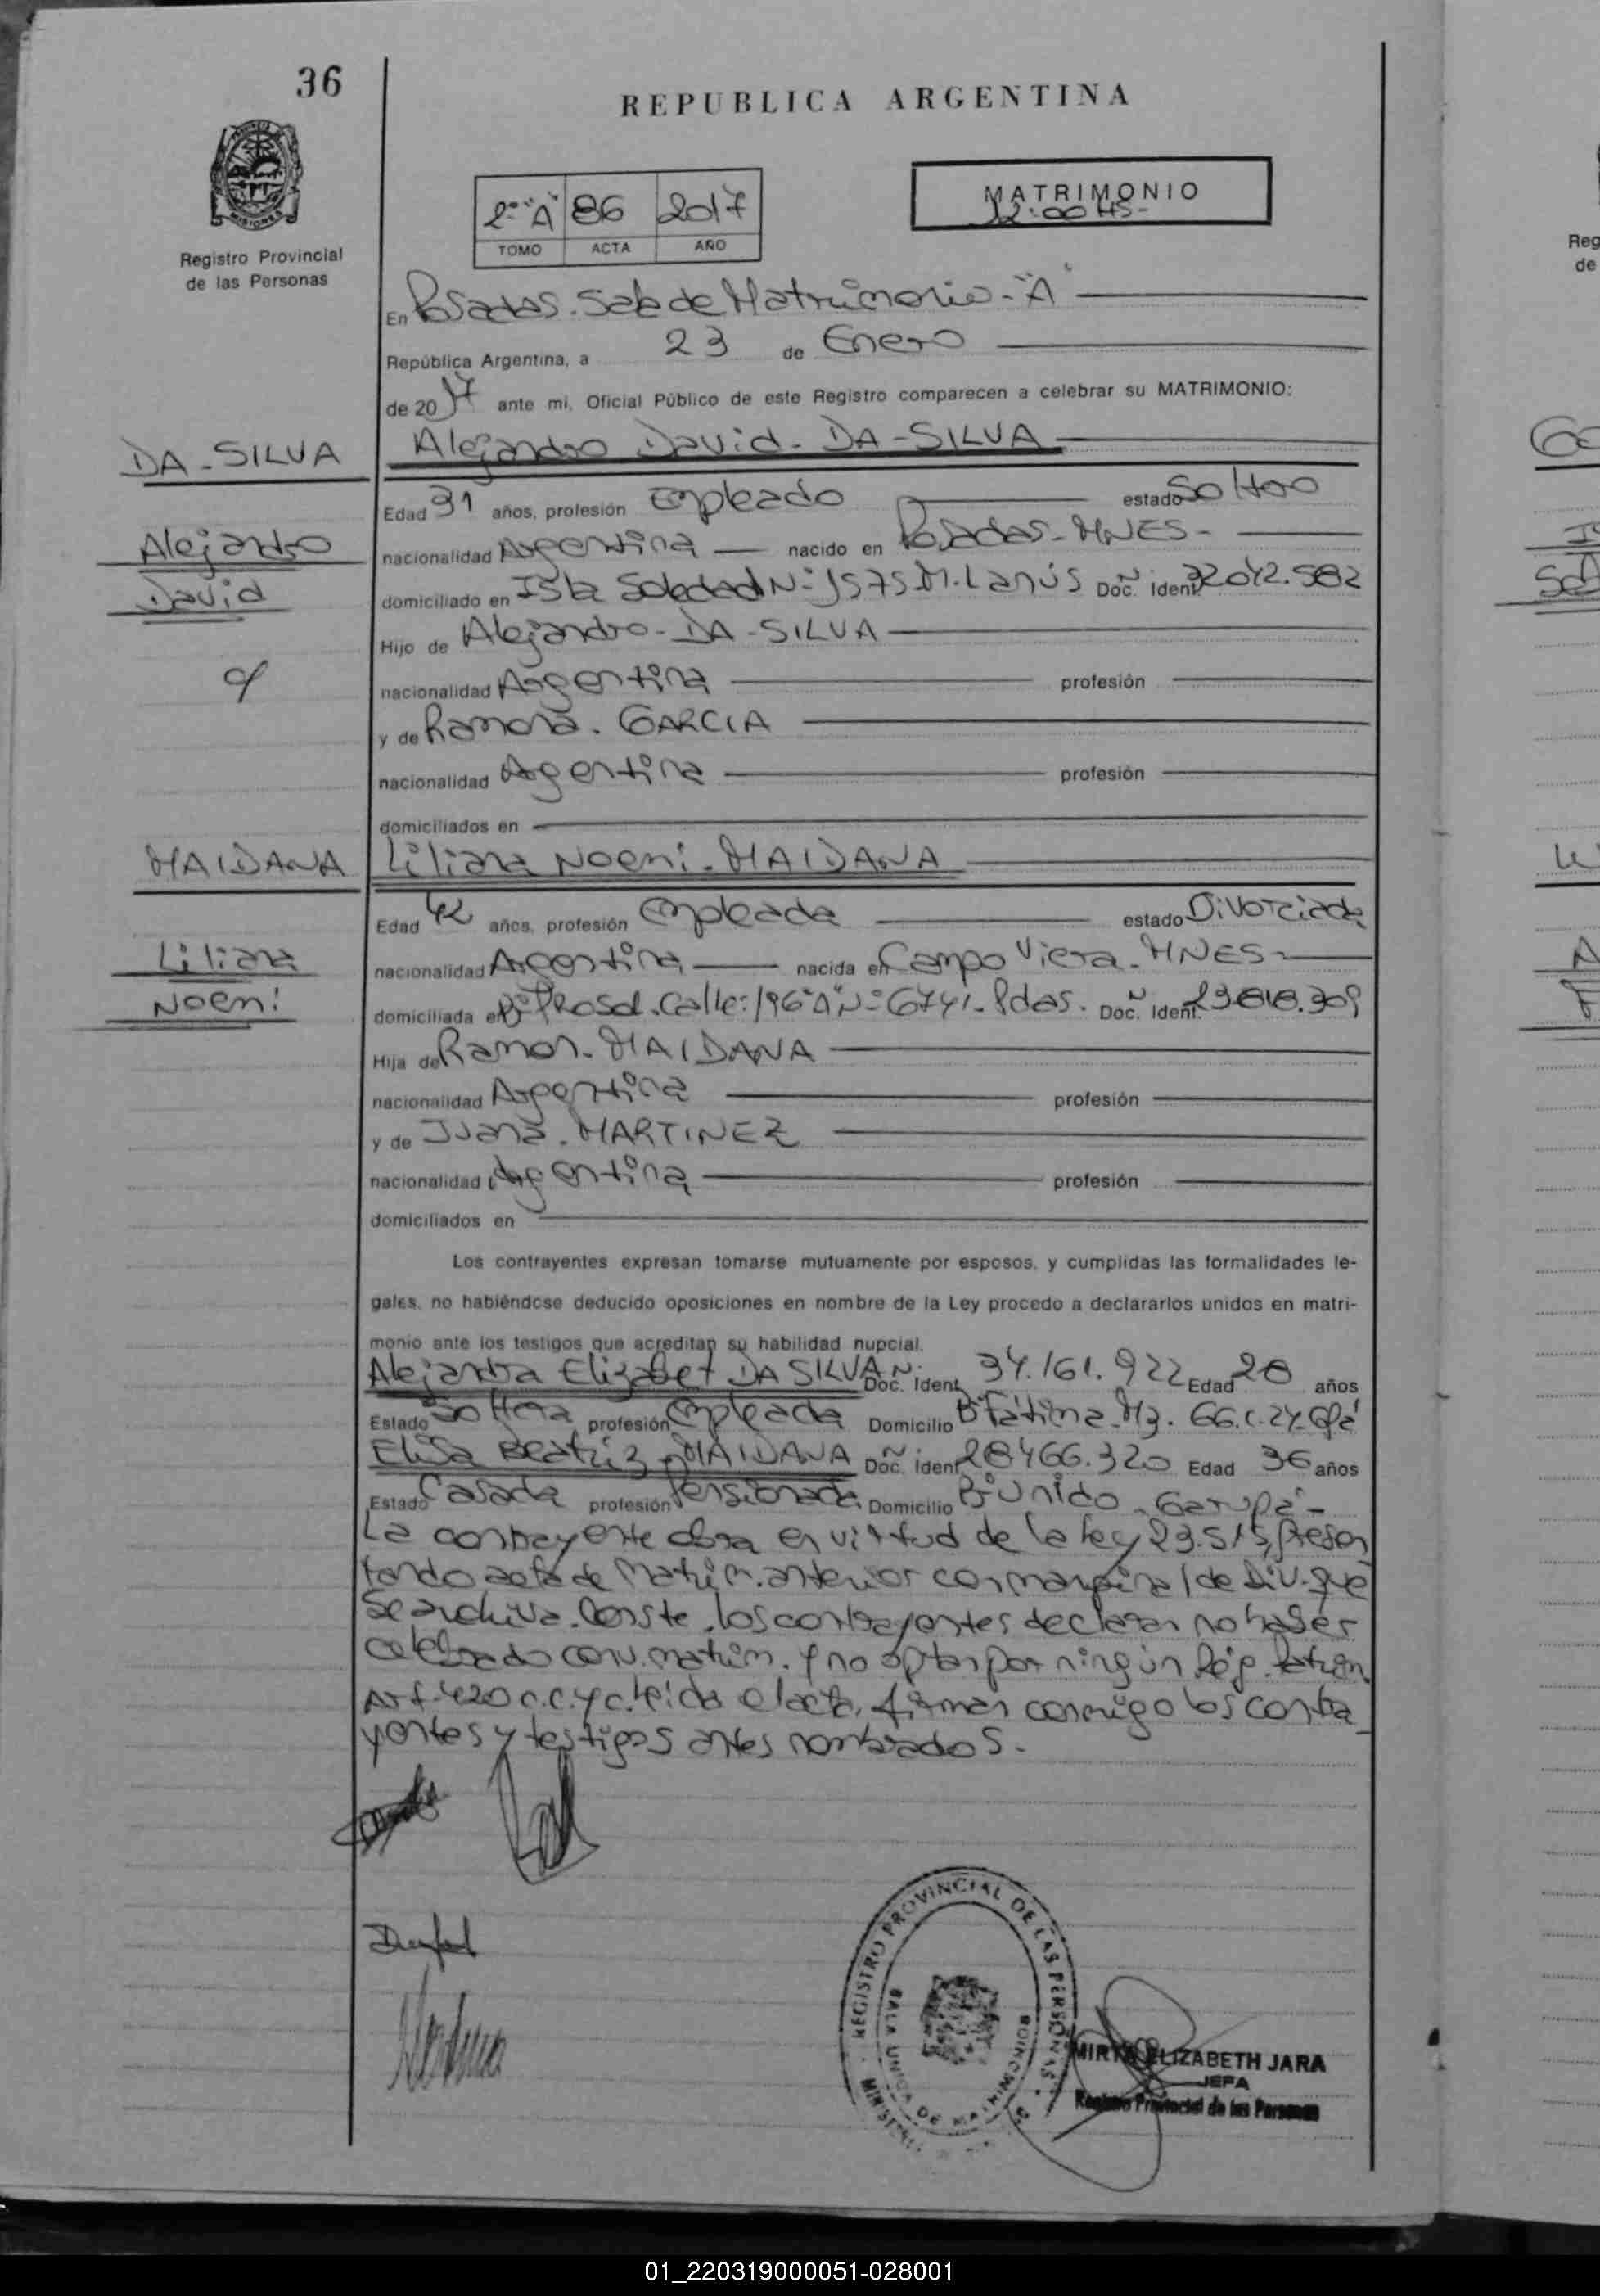 36
REPUBLICA ARGENTINA
Registro Provincial
de las Personas
2º "A" 86 2017
TOMO ACTA AÑO
MATRIMONIO
12:00 HS-
En Posadas. Sala de Matrimonio - "A"
República Argentina, a 23 de Enero
de 2017 ante mi, Oficial Público de este Registro comparecen a celebrar su MATRIMONIO:
DA-SILVA
Alejandro David- DA-SILVA
Edad 31 años, profesión Empleado estado Soltero
Alejandro
David
y
nacionalidad Argentina nacido en Posadas- MNES-
domiciliado en Isla Soledad Nº 1575 M. Lanús Doc. Ident. 32.042.582
Hijo de Alejandro- DA-SILVA
nacionalidad Argentina profesión
y de Ramona. GARCIA
nacionalidad Argentina profesión
domiciliados en
MAIDANA
Liliana Noemi- MAIDANA
Edad 42 años, profesión Empleada estado Divorciada
Liliana
Noemi
nacionalidad Argentina nacida en Campo Viera- MNES-
domiciliada en Bº Prosol. Calle: 196 "A" Nº 6741- Pdas. Doc. Ident. 23.818.309
Hija de Ramon- MAIDANA
nacionalidad Argentina profesión
y de Juana. MARTINEZ
nacionalidad Argentina profesión
domiciliados en
Los contrayentes expresan tomarse mutuamente por esposos, y cumplidas las formalidades le-
gales, no habiéndose deducido oposiciones en nombre de la Ley procedo a declararlos unidos en matri-
monio ante los testigos que acreditan su habilidad nupcial.
Alejandra Elizabet DA SILVA Doc. Ident. 34.161.922 Edad 28 años
Estado Soltera profesión Empleada Domicilio Bº Fátima Mz. 66. C. 24. Gpá
Elisa Beatriz- MAIDANA Doc. Ident. 28466.320 Edad 36 años
Estado Casada profesión Pensionada Domicilio Bº Unido. Garupá-
La contrayente obra en virtud de la ley 23.515, Presen
tando acta de Matrim. anterior con marginal de Div. que
Se archiva. Conste. los contrayentes declaran no haber
celebrado conv. matrim. y no optan por ningún Rég. Patrim
Art. 420 C.C. y C. leída el acta, firman conmigo los contra
yentes y testigos antes nombrados.
REGISTRO PROVINCIAL DE LAS PERSONAS
SALA UNICA DE MATRIMONIOS
MIRTA ELIZABETH JARA
JEFA
Registro Provincial de las Personas
01_220319000051-028001